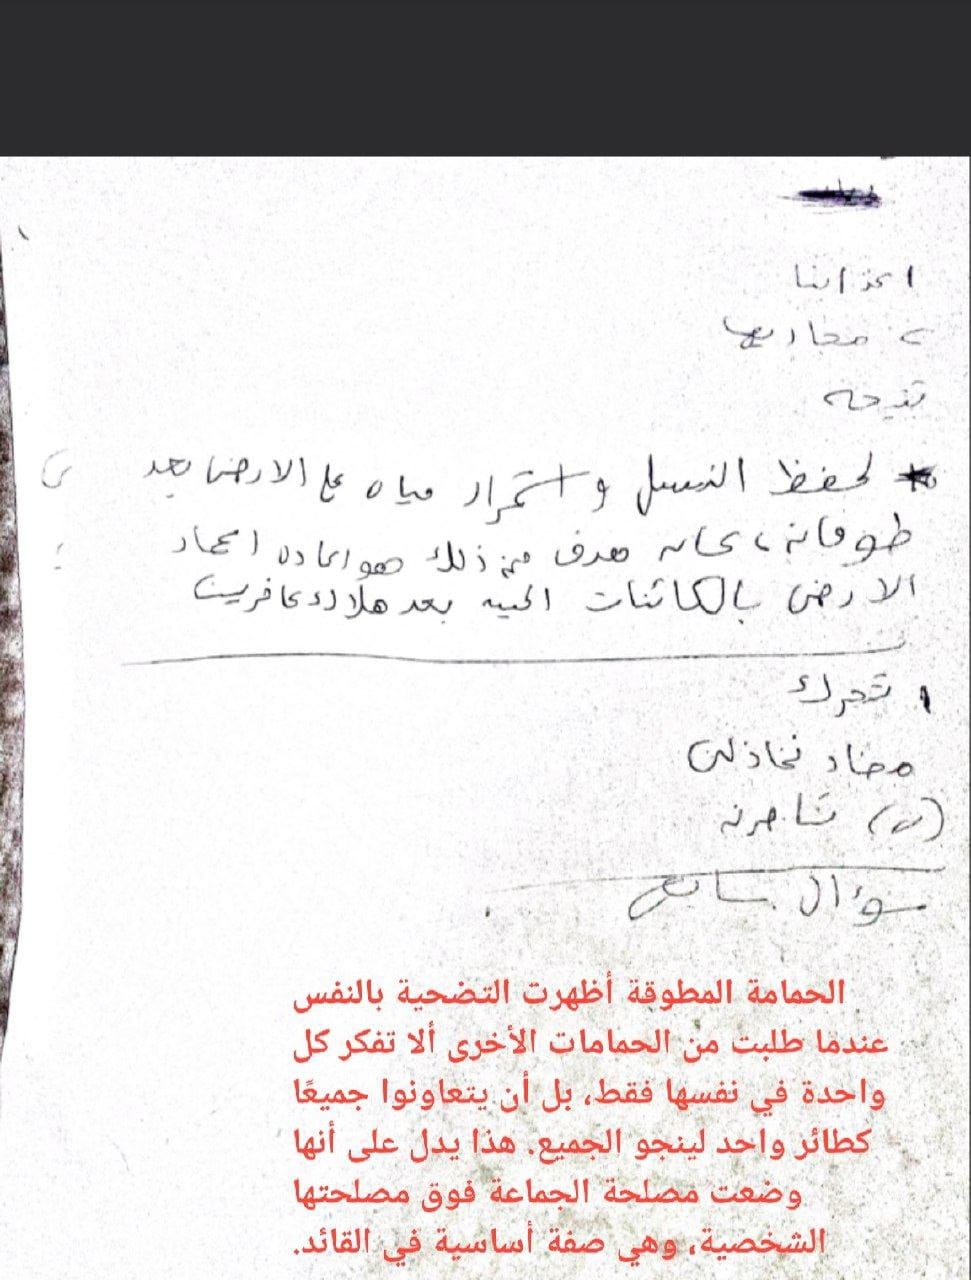 * لحفظ النسل و استمرار مياه على الارض بعد
طوفانه، كانه هدف من ذلك هو اعاده اعمار
الارض بالكائنات الحيه بعد هلاك كافرين
تحرك
مضاد تخاذلن
سؤال سابع
الحمامة المطوقة أظهرت التضحية بالنفس
عندما طلبت من الحمامات الأخرى ألا تفكر كل
واحدة في نفسها فقط، بل أن يتعاونوا جميعًا
كطائر واحد لينجو الجميع. هذا يدل على أنها
وضعت مصلحة الجماعة فوق مصلحتها
الشخصية، وهي صفة أساسية في القائد.